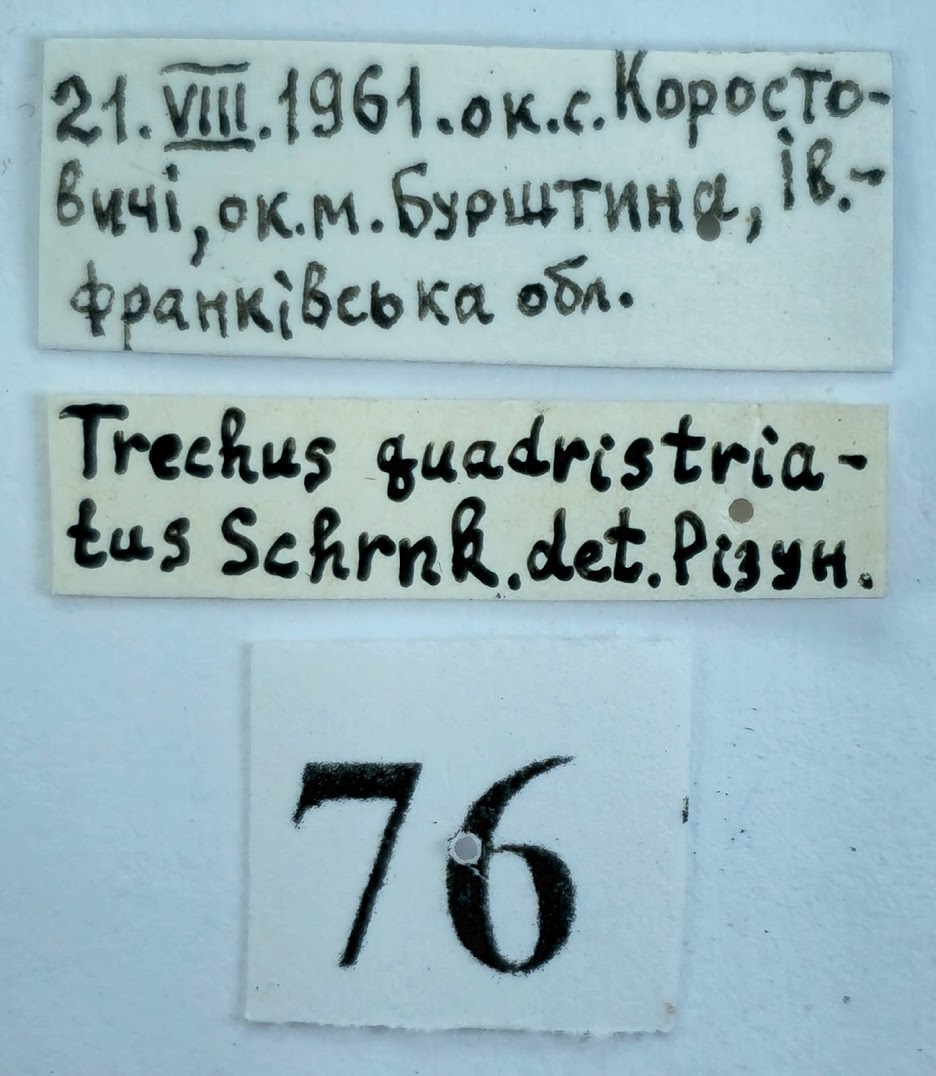 21.VIII.1961.ок.с.Коросто-
вичі, ок.м.Бурштина, Ів.-
франківська обл.
Trechus quadristria-
tus Schrnk.det.Різун.
76